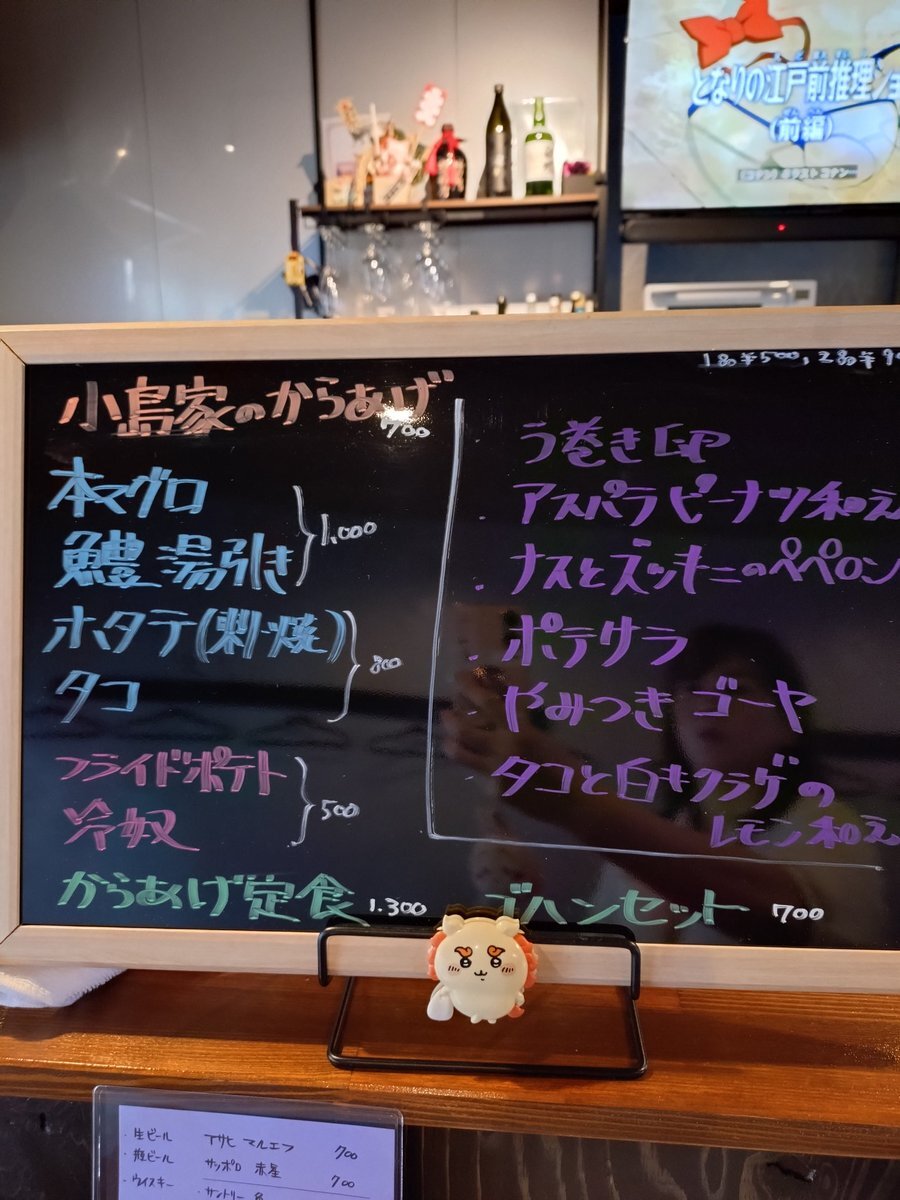 となりの江戸前推理ショ
(前編)
1品¥500, 2品¥9
小島家のからあげ
700
本マグロ
鱧 湯引き
1,000
ホタテ(刺・焼)
タコ
800
フライドポテト
冷奴
500
う巻き
アスパラピーナツ和え
ナスとズッキーニのペペロン
ポテサラ
やみつきゴーヤ
タコと白キクラゲの
レモン和え
からあげ定食 1.300
ゴハンセット 700
・生ビール アサヒ マルエフ 700
・瓶ビール サッポロ 赤星 700
・ウイスキー サントリー